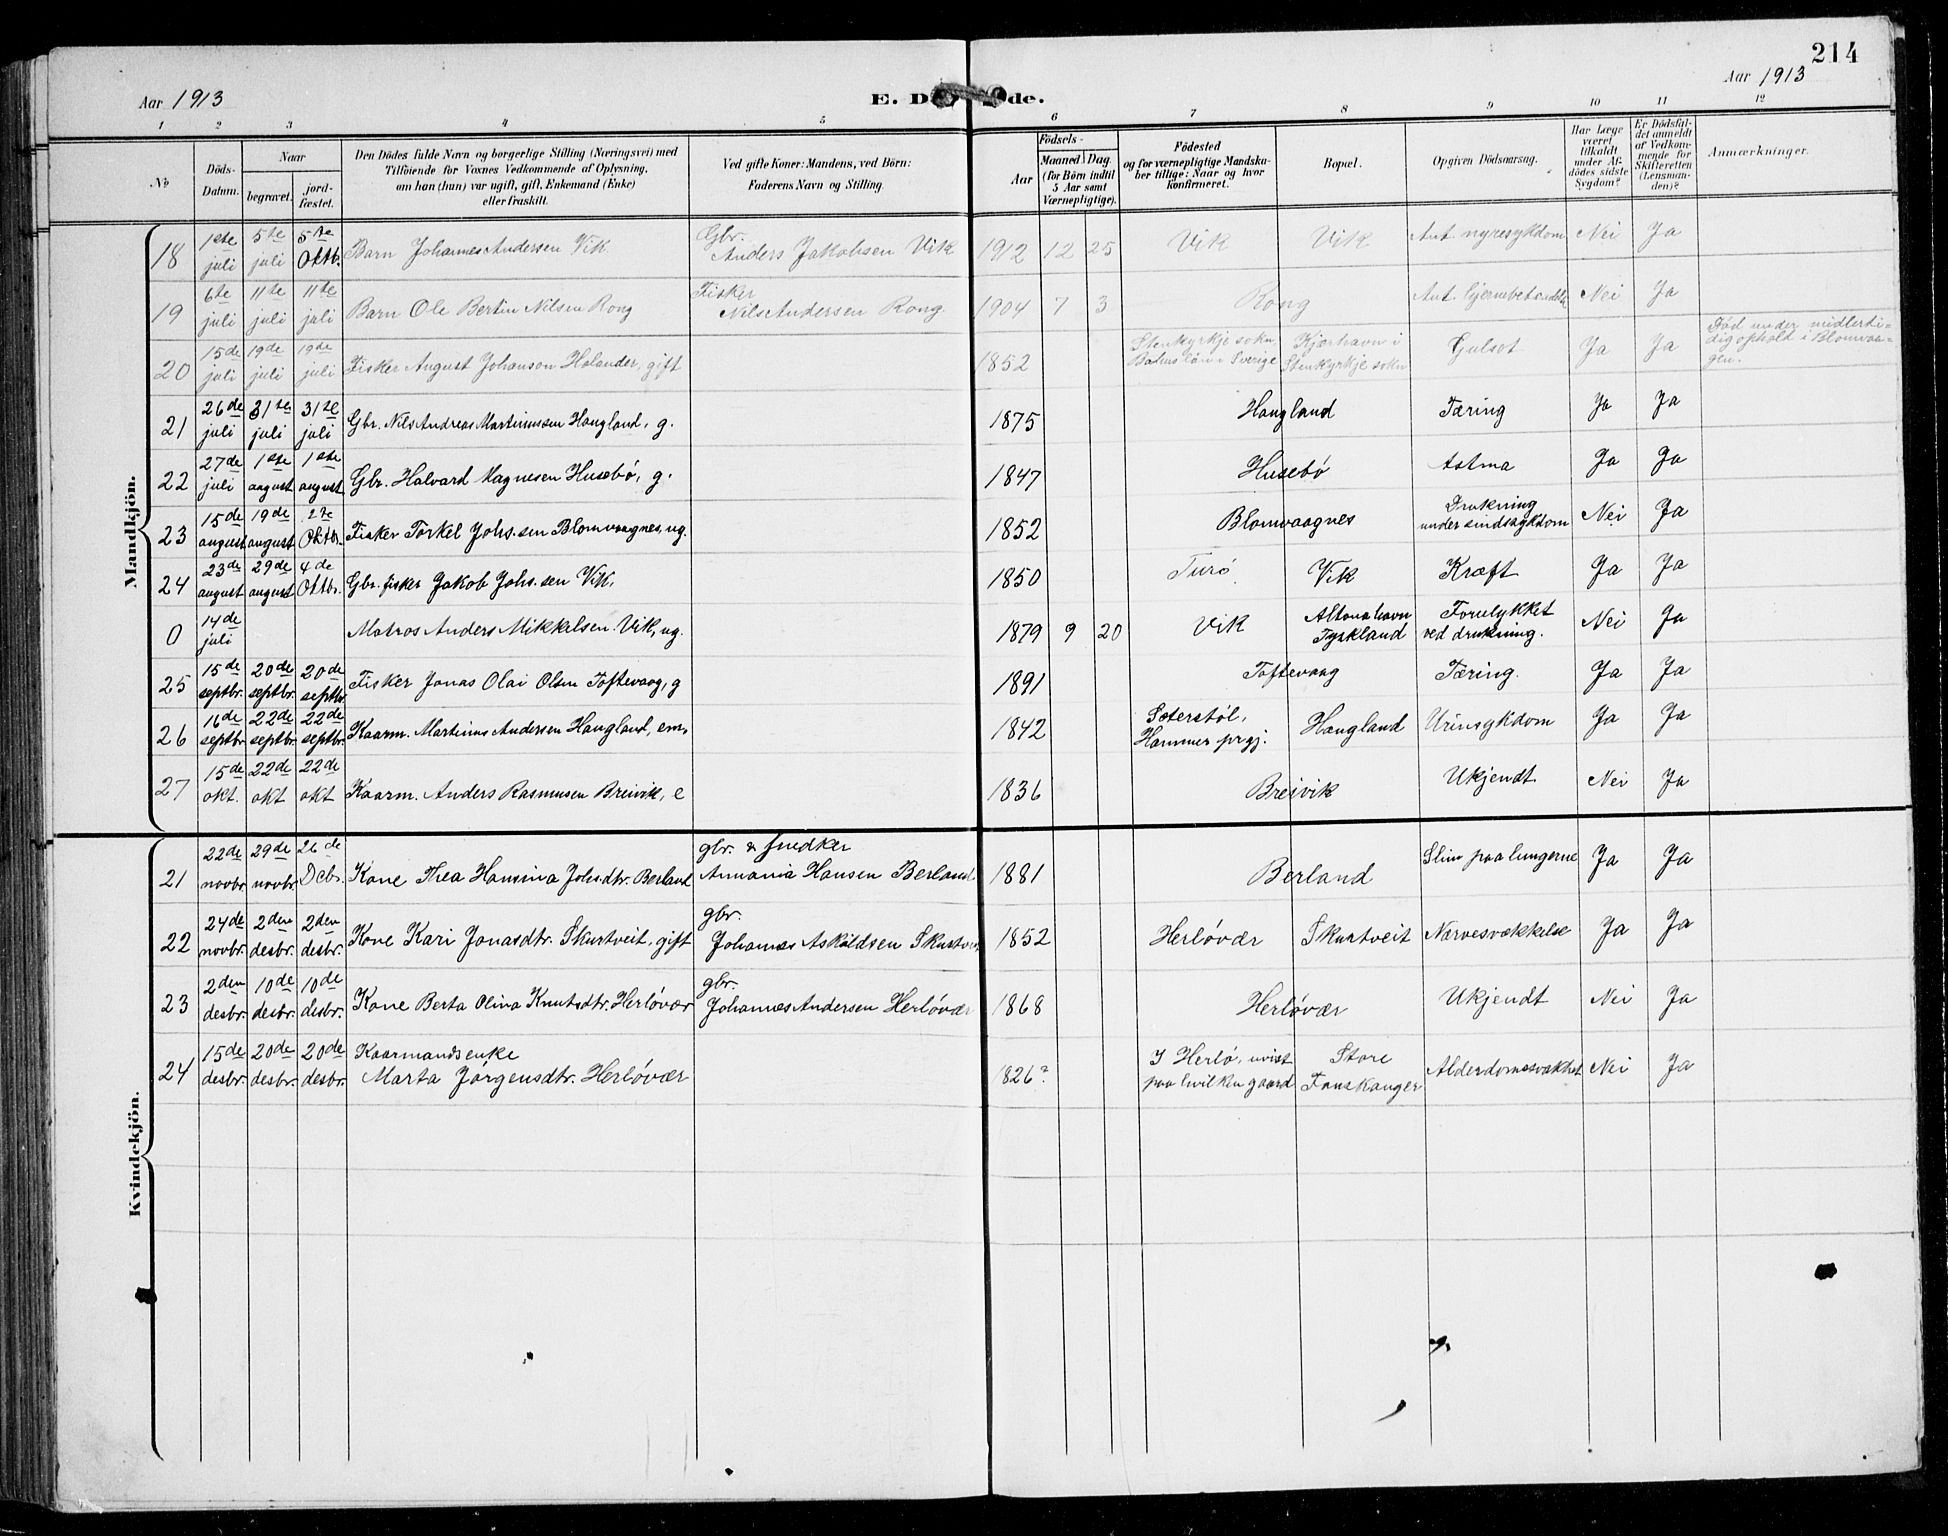 214
Aar 1913
E. Døde.
Aar 1913
1 2 3 4 5 6 7 8 9 10 11 12
No
Döds-Datum.
Naar
begravet.
jord-fæstet.
Den Dödes fulde Navn og borgerlige Stilling (Næringsvei) med
Tilföiende for Voxnes Vedkommende af Oplysning,
om han (hun) var ugift, gift, Enkemand (Enke)
eller fraskilt.
Ved gifte Koner: Mandens, ved Börn:
Faderens Navn og Stilling.
Födsels-
Aar
Maaned Dag
(for Börn indtil
5 Aar samt
Værnepligtige).
Födested
og for værnepligtige Mandska-
ber tillige: Naar og hvor
konfirmeret.
Bopæl.
Opgiven Dödsaarsag.
Har Læge
været
tilkaldt
under Af-
dödes sidste
Sygdom?
Er Dödsfal-
det anmeldt
af Vedkom-
mende for
Skifteretten
(Lensman-
den)?
Anmærkninger.
Mandkjön.
18 1ste juli 5te juli 5te Oktb. Barn Johannes Andersen Vik Gbr. Anders Jakobsen Vik 1912 12 25 Vik Vik Ant. nyresykdom Nei Ja
19 6te juli 11te juli 11te juli Barn Ole Bertin Nilsen Rong Fisker Nils Andersen Rong. 1904 7 3 Rong Ant. Nei Ja
20 15de juli 19de juli 19de juli Fisker August Johanson Holander, gift 1852 Stenkyrkje sokn Bahus län i Sverige Kjørhavn i Stenkyrkje sokn Gulsot Ja Ja Død under midlerti-
dig ophold i Blomvaa-
gen.
21 26de juli 31te juli 31te juli Gbr. Nils Andreas Martinusen Haugland, g. 1875 Haugland Tæring Ja Ja
22 27de juli 1ste august 1ste august Gbr. Halvard Magnesen Husebø, g. 1847 Husebø Astma Ja Ja
23 15de august 19de august 2te Oktbr. Fisker Torkel Johs.sen Blomvaagnes, ug. 1852 Blomvaagnes Drukning under sindssykdom Nei Ja
24 23de august 29de august 4de Oktbr. Gbr. fisker Jakob Johs.sen Vik. 1850 Turø Vik Kræft Ja Ja
0 14de juli Matros Anders Mikkelsen Vik, ug. 1879 9 20 Vik Altona havn Tyskland Forulykket ved drukning. Nei Ja
25 15de septbr. 20de septbr. 20de septbr. Fisker Jonas Olai Olsen Toftevaag, g 1891 Toftevaag Tæring. Ja Ja
26 16de septbr. 22de septbr. 22de septbr. Kaarm. Martinus Andersen Haugland, em. 1842 Sæterstøl, Hammer prgj. Haugland Urinsykdom Ja Ja
27 15de okt. 22de okt 22de okt Kaarm. Anders Rasmusen Breivik, e 1836 Breivik Ukjendt Nei Ja
Kvindekjön.
21 22de novbr. 29de novbr. 26de Dcbr. Kone Thea Hansina Johsdtr. Berland gbr. & snedker Annania Hansen Berland 1881 Berland Slim paa lungerne Ja Ja
22 24de novbr. 2den desbr. 2den desbr. Kone Kari Jonasdtr. Skurtveit, gift gbr. Johannes Askildsen 1852 Herløvær Skurtveit Nervesvækkelse Ja Ja
23 2den desbr. 10de desbr. 10de desbr. Kone Berta Olina Knutsdtr. Herløvær gbr. Johannes Andersen Herløvær 1868 Herløvær Ukjendt Nei Ja
24 15de desbr. 20de desbr. 20de desbr. Kaarmandsenke Marta Jørgensdtr. Herløvær 1826? I Herlø, uvist paa hvilken gaard Store Fauskanger Alderdomssvakhet Nei Ja